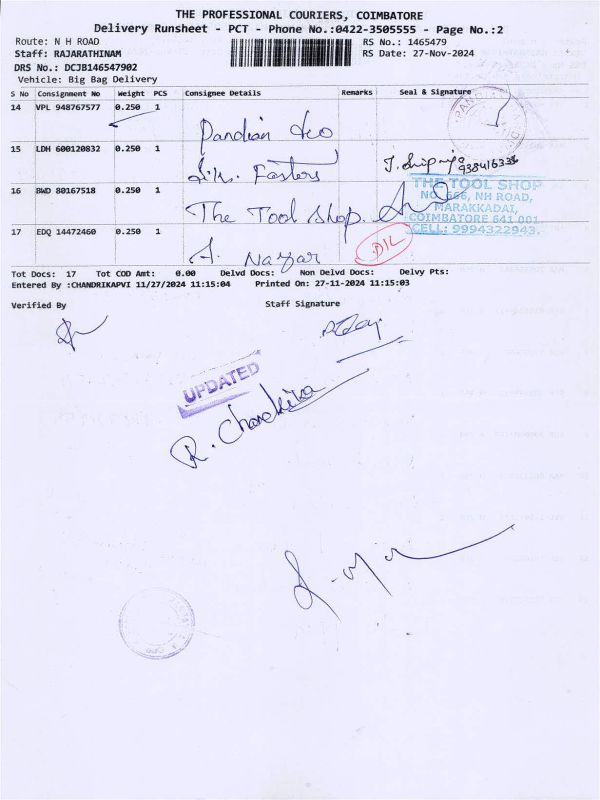 THE PROFESSIONAL COURIERS, COIMBATORE
Delivery Runsheet - PCT - Phone No.:0422-3505555 - Page No.:2
Route: N H ROAD RS No.: 1465479
Staff: RAJARATHINAM RS Date: 27-Nov-2024
DRS No.: DCJB146547902
Vehicle: Big Bag Delivery
S No Consignment No Weight PCS Consignee Details Remarks Seal & Signature
14 VPL 948767577 0.250 1
Pandian
15 LDH 600120832 0.250 1
16 BWD 80167518 0.250 1
THE TOOL SHOP
NO. 566, NH ROAD,
MARAKKADAI,
COIMBATORE 641 001.
CELL: 9994322943.
The Tool Shop.
17 EDQ 14472460 0.250 1
A. Nazar
Tot Docs: 17 Tot COD Amt: 0.00 Delvd Docs: Non Delvd Docs: Delvy Pts:
Entered By :CHANDRIKAPVI 11/27/2024 11:15:04 Printed On: 27-11-2024 11:15:03
Verified By Staff Signature
UPDATED
R. Chandrika